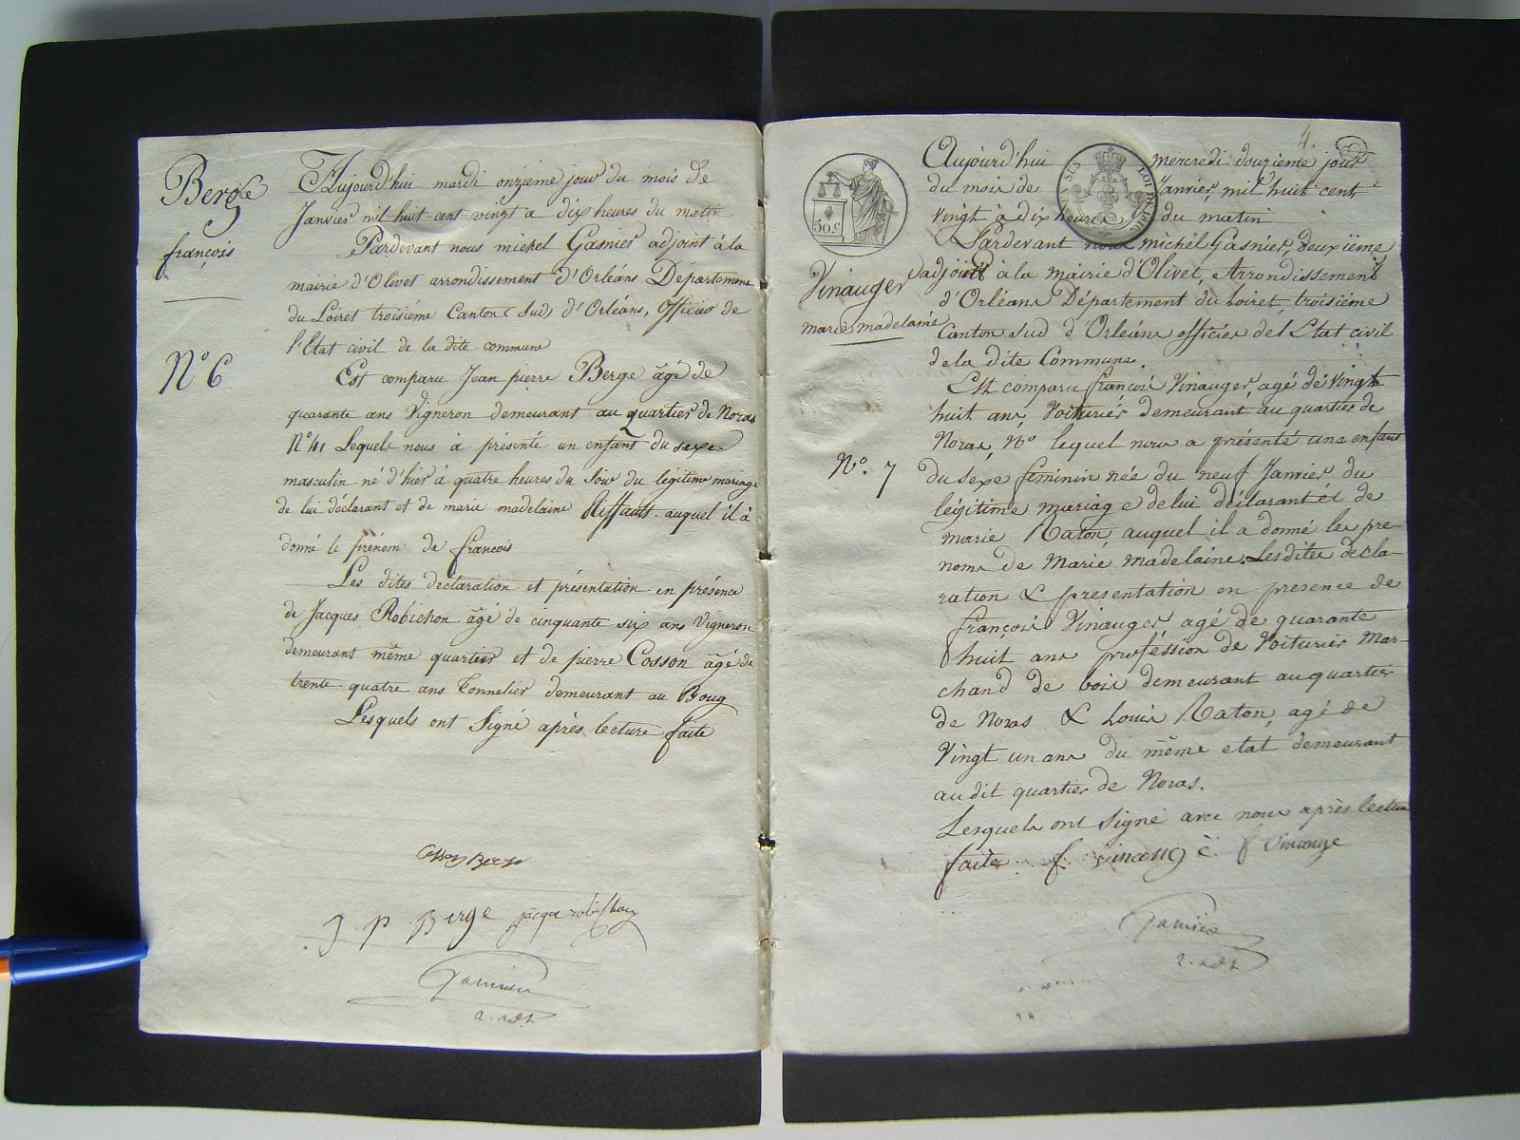 Berge
françois
N° 6
Aujourd'hui mardi onzième jour du mois de
Janvier mil huit cent vingt a dix heures du matin
Pardevant nous michel Gasnier adjoint à la
mairie d'Olivet arrondissement d'Orléans Département
du Loiret troisième Canton Sud d'Orléans, Officier de
l'Etat civil de la dite commune
Est comparu Jean pierre Berge âgé de
quarante ans Vigneron demeurant au quartier de Noras
N° 41 Lequel nous à présenté un enfant du sexe
masculin né d'hier à quatre heures du Soir du légitime mariage
de lui déclarant et de marie madelaine Riffault auquel il à
donné le prénom de francois
Les dites déclaration et présentation en présence
de Jacques Robichon âgé de cinquante six ans Vigneron
demeurant même quartier et de pierre Cosson âgé de
trente quatre ans Tonnelier demeurant au Boug
Lesquels ont Signé après lecture faite
J P Berge
2. adt
4.
50 c
Vinauger
marie madelaine
N°. 7
Aujourd'hui mercredi douzieme jour
du mois de Janvier, mil huit cent
vingt à dix heures du matin
Pardevant nous michel Gasnier, deuxième
adjoint à la mairie d'Olivet, Arrondissement
d'Orléans Département du Loiret, troisième
Canton Sud d'Orléans officier de l'Etat civil
de la dite Commune.
Est comparu françois Vinauger, agé de vingt
huit ans, Voiturier demeurant au quartier de
Noras, N° lequel nous a présenté une enfant
du sexe féminin née du neuf Janvier du
légitime mariage de lui déclarant et de
marie Raton auquel il a donné les pre-
noms de Marie madelaine. Lesdites decla-
ration & presentation en presence de
françois Vinauger agé de quarante
huit ans proféssion de Voiturier Mar-
chand de bois demeurant au quartier
de Noras & Louis Raton, agé de
Vingt un ans du même etat demeurant
audit quartier de Noras.
Lesquels ont signé avec nous après lecture
faite. f vinaug è f Vinauge
2. adt